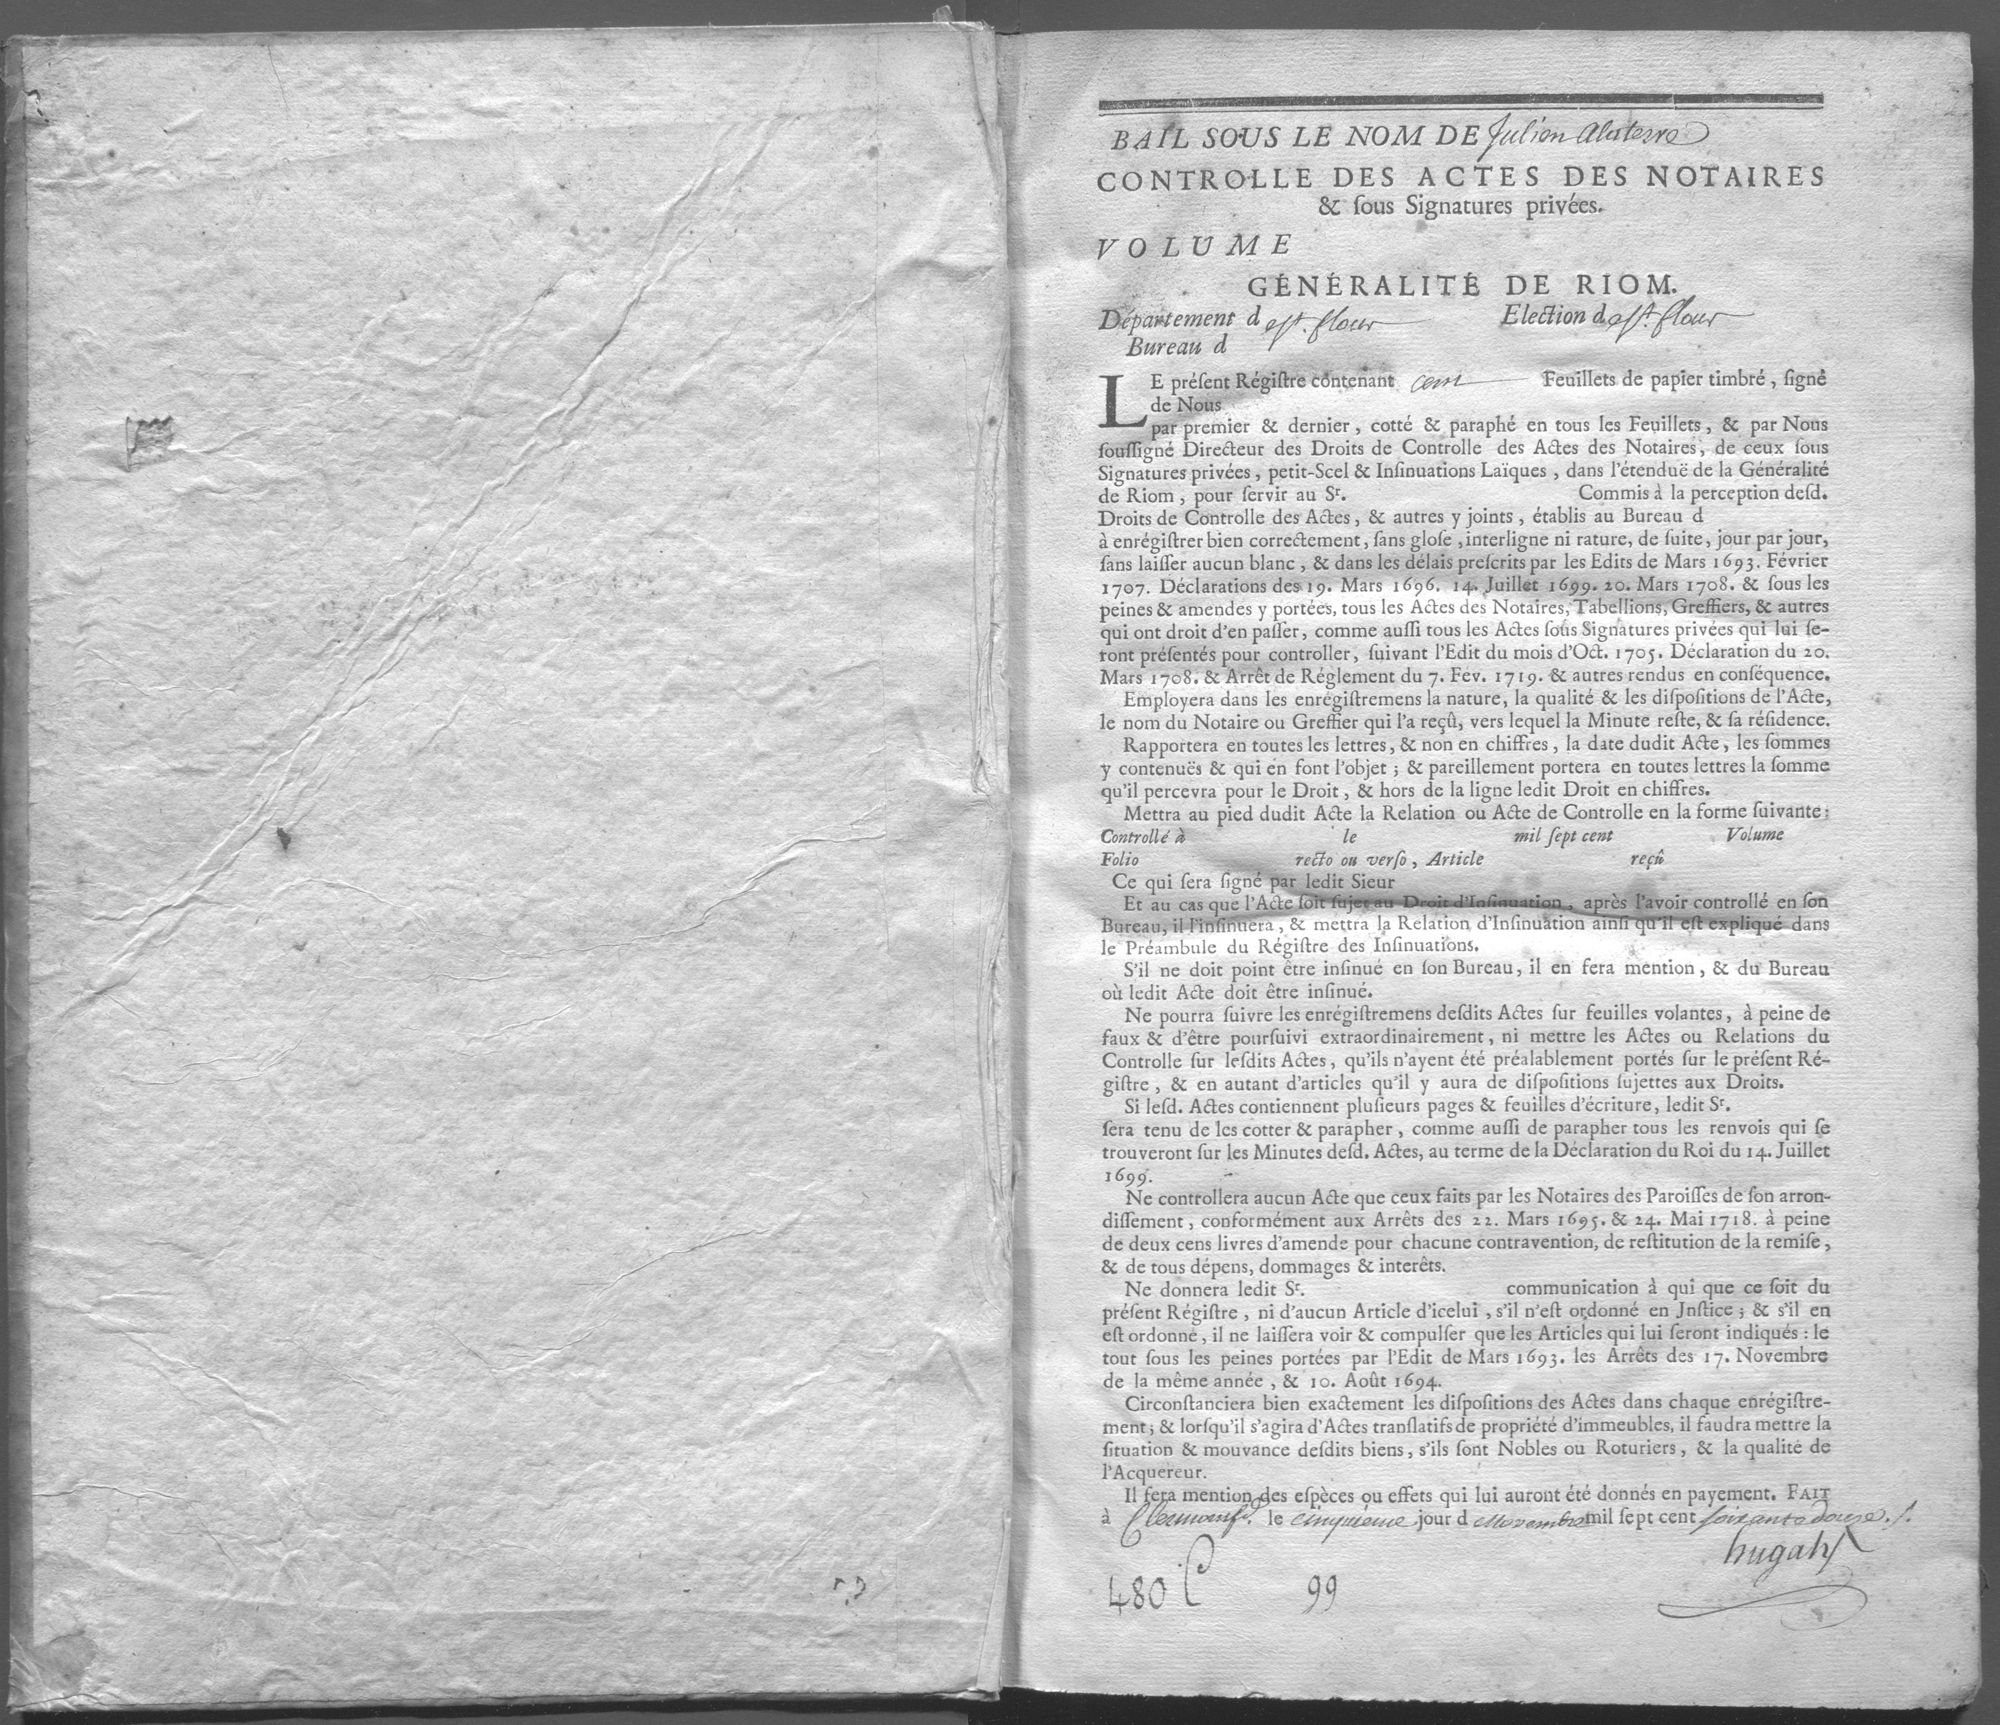 BAIL SOUS LE NOM DE Julien Alaterre
CONTROLLE DES ACTES DES NOTAIRES
& ſous Signatures privées.
VOLUME
GÉNÉRALITÉ DE RIOM.
Département d e St. flour Election d e St. flour
Bureau d
LE préſent Régiſtre contenant cent Feuillets de papier timbré, ſigné
de Nous
par premier & dernier, cotté & paraphé en tous les Feuillets, & par Nous
ſouſſigné Directeur des Droits de Controlle des Actes des Notaires, de ceux ſous
Signatures privées, petit-Scel & Inſinuations Laïques, dans l'étenduë de la Généralité
de Riom, pour ſervir au Sr. Commis à la perception deſd.
Droits de Controlle des Actes, & autres y joints, établis au Bureau d
à enrégiſtrer bien correctement, ſans gloſe, interligne ni rature, de ſuite, jour par jour,
ſans laiſſer aucun blanc, & dans les délais preſcrits par les Edits de Mars 1693. Février
1707. Déclarations des 19. Mars 1696. 14. Juillet 1699. 20. Mars 1708. & ſous les
peines & amendes y portées, tous les Actes des Notaires, Tabellions, Greffiers, & autres
qui ont droit d'en paſſer, comme auſſi tous les Actes ſous Signatures privées qui lui ſe-
ront préſentés pour controller, ſuivant l'Edit du mois d'Oct. 1705. Déclaration du 20.
Mars 1708. & Arrêt de Réglement du 7. Fév. 1719. & autres rendus en conſéquence.
Employera dans les enrégiſtremens la nature, la qualité & les diſpoſitions de l'Acte,
le nom du Notaire ou Greffier qui l'a reçû, vers lequel la Minute reſte, & ſa réſidence.
Rapportera en toutes les lettres, & non en chiffres, la date dudit Acte, les ſommes
y contenuës & qui en font l'objet; & pareillement portera en toutes lettres la ſomme
qu'il percevra pour le Droit, & hors de la ligne ledit Droit en chiffres.
Mettra au pied dudit Acte la Relation ou Acte de Controlle en la forme ſuivante:
Controllé à le mil ſept cent Volume
Folio recto ou verſo, Article reçû
Ce qui ſera ſigné par ledit Sieur
Et au cas que l'Acte ſoit ſujet au Droit d'Inſinuation, après l'avoir controllé en ſon
Bureau, il l'inſinuera, & mettra la Relation d'Inſinuation ainſi qu'il eſt expliqué dans
le Préambule du Régiſtre des Inſinuations.
S'il ne doit point être inſinué en ſon Bureau, il en fera mention, & du Bureau
où ledit Acte doit être inſinué.
Ne pourra ſuivre les enrégiſtremens deſdits Actes ſur feuilles volantes, à peine de
faux & d'être pourſuivi extraordinairement, ni mettre les Actes ou Relations du
Controlle ſur leſdits Actes, qu'ils n'ayent été préalablement portés ſur le préſent Ré-
giſtre, & en autant d'articles qu'il y aura de diſpoſitions ſujettes aux Droits.
Si leſd. Actes contiennent pluſieurs pages & feuilles d'écriture, ledit Sr.
ſera tenu de les cotter & parapher, comme auſſi de parapher tous les renvois qui ſe
trouveront ſur les Minutes deſd. Actes, au terme de la Déclaration du Roi du 14. Juillet
1699.
Ne controllera aucun Acte que ceux faits par les Notaires des Paroiſſes de ſon arron-
diſſement, conformément aux Arrêts des 22. Mars 1695. & 24. Mai 1718. à peine
de deux cens livres d'amende pour chacune contravention, de reſtitution de la remiſe,
& de tous dépens, dommages & interêts.
Ne donnera ledit Sr. communication à qui que ce ſoit du
préſent Régiſtre, ni d'aucun Article d'icelui, s'il n'eſt ordonné en Jnſtice; & s'il en
eſt ordonné, il ne laiſſera voir & compulſer que les Articles qui lui ſeront indiqués: le
tout ſous les peines portées par l'Edit de Mars 1693. les Arrêts des 17. Novembre
de la même année, & 10. Août 1694.
Circonſtanciera bien exactement les diſpoſitions des Actes dans chaque enrégiſtre-
ment; & lorſqu'il s'agira d'Actes tranſlatifs de propriété d'immeubles, il faudra mettre la
ſituation & mouvance deſdits biens, s'ils ſont Nobles ou Roturiers, & la qualité de
l'Acquereur.
Il ſera mention des eſpèces ou effets qui lui auront été donnés en payement. FAIT
à Clermontfd. le cinquieme jour d e Novembre mil ſept cent soixante douze./.
hugah
480 C 99